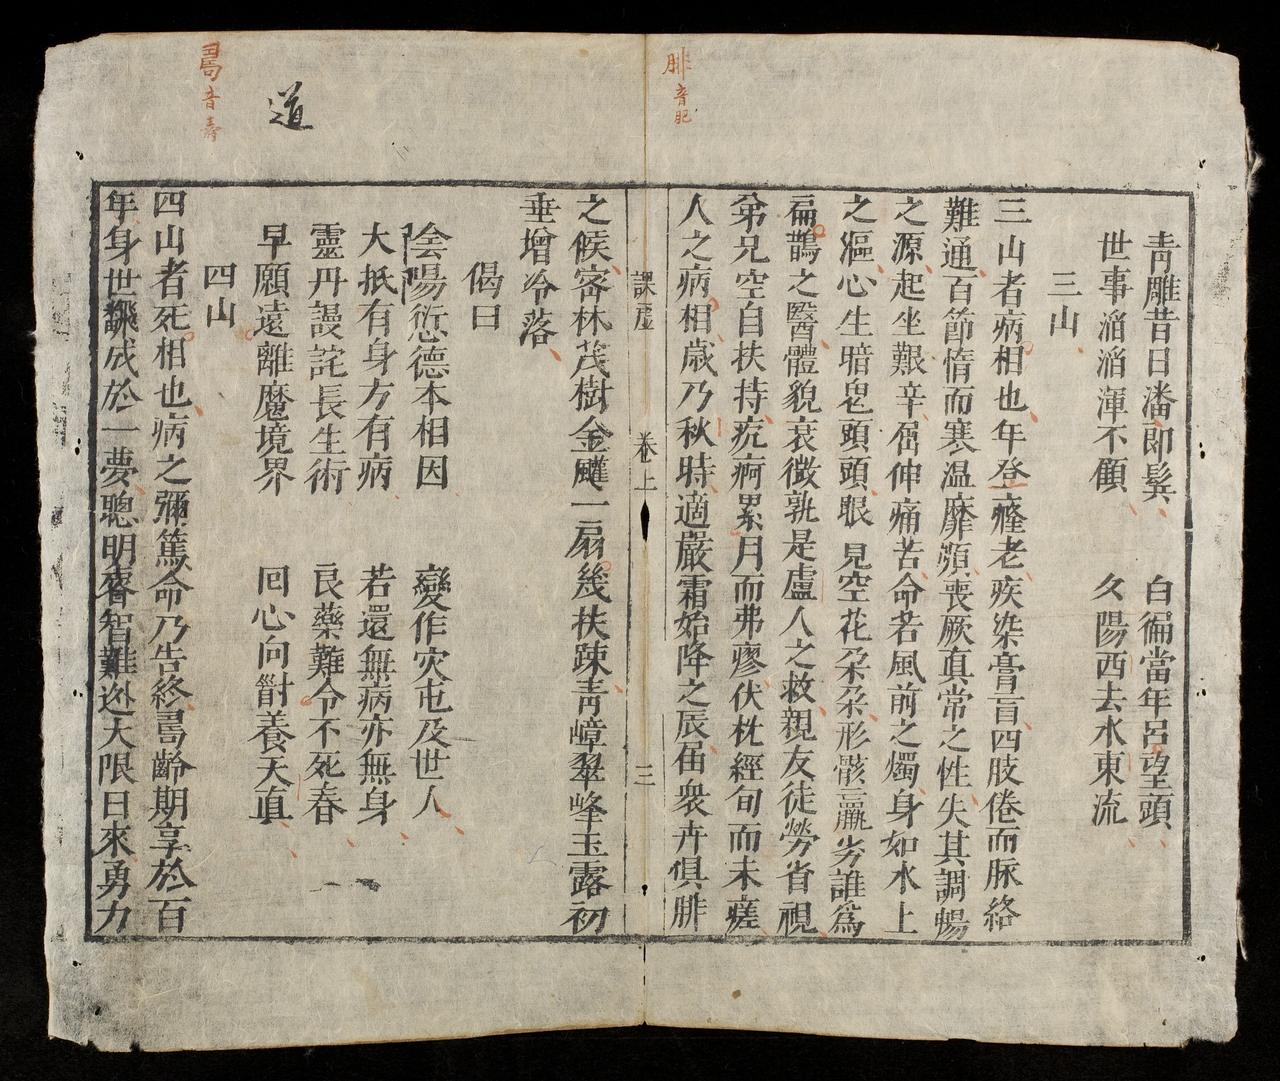 腓音肥
青雕昔日潘郎鬂 白徧當年呂望頭
世事滔滔渾不顧 夕陽西去水東流
三山
三山者病相也年登癃老疾染膏肓四肢倦而脉絡
難通百節惰而寒温靡順喪厥真常之性失其調暢
之源起坐艱辛屈伸痛苦命若風前之燭身如水上
之漚心生暗鬼頭頭眼見空花朶朶形骸羸劣誰為
扁鵲之醫體貌衰微孰是盧人之救親友徒勞省視
弟兄空自扶持疣痾累月而弗瘳伏枕經旬而未瘥
人之病相歲乃秋時適嚴霜始降之辰届衆卉俱腓
課虛 卷上 三
之候宻林茂樹金飈一扇幾扶踈青嶂翠峰玉露初
垂增冷落
偈曰
陰陽愆德本相因 變作灾屯及世人
大抵有身方有病 若還無病亦無身
靈丹謾詫長生術 良藥難令不死春
早願遠離魔境界 囘心向道養天真
道
四山
四山者死相也病之彌篤命乃告終壽齡期享於百
年身世飜成於一夢聰明睿智難迯大限日來勇力
音壽